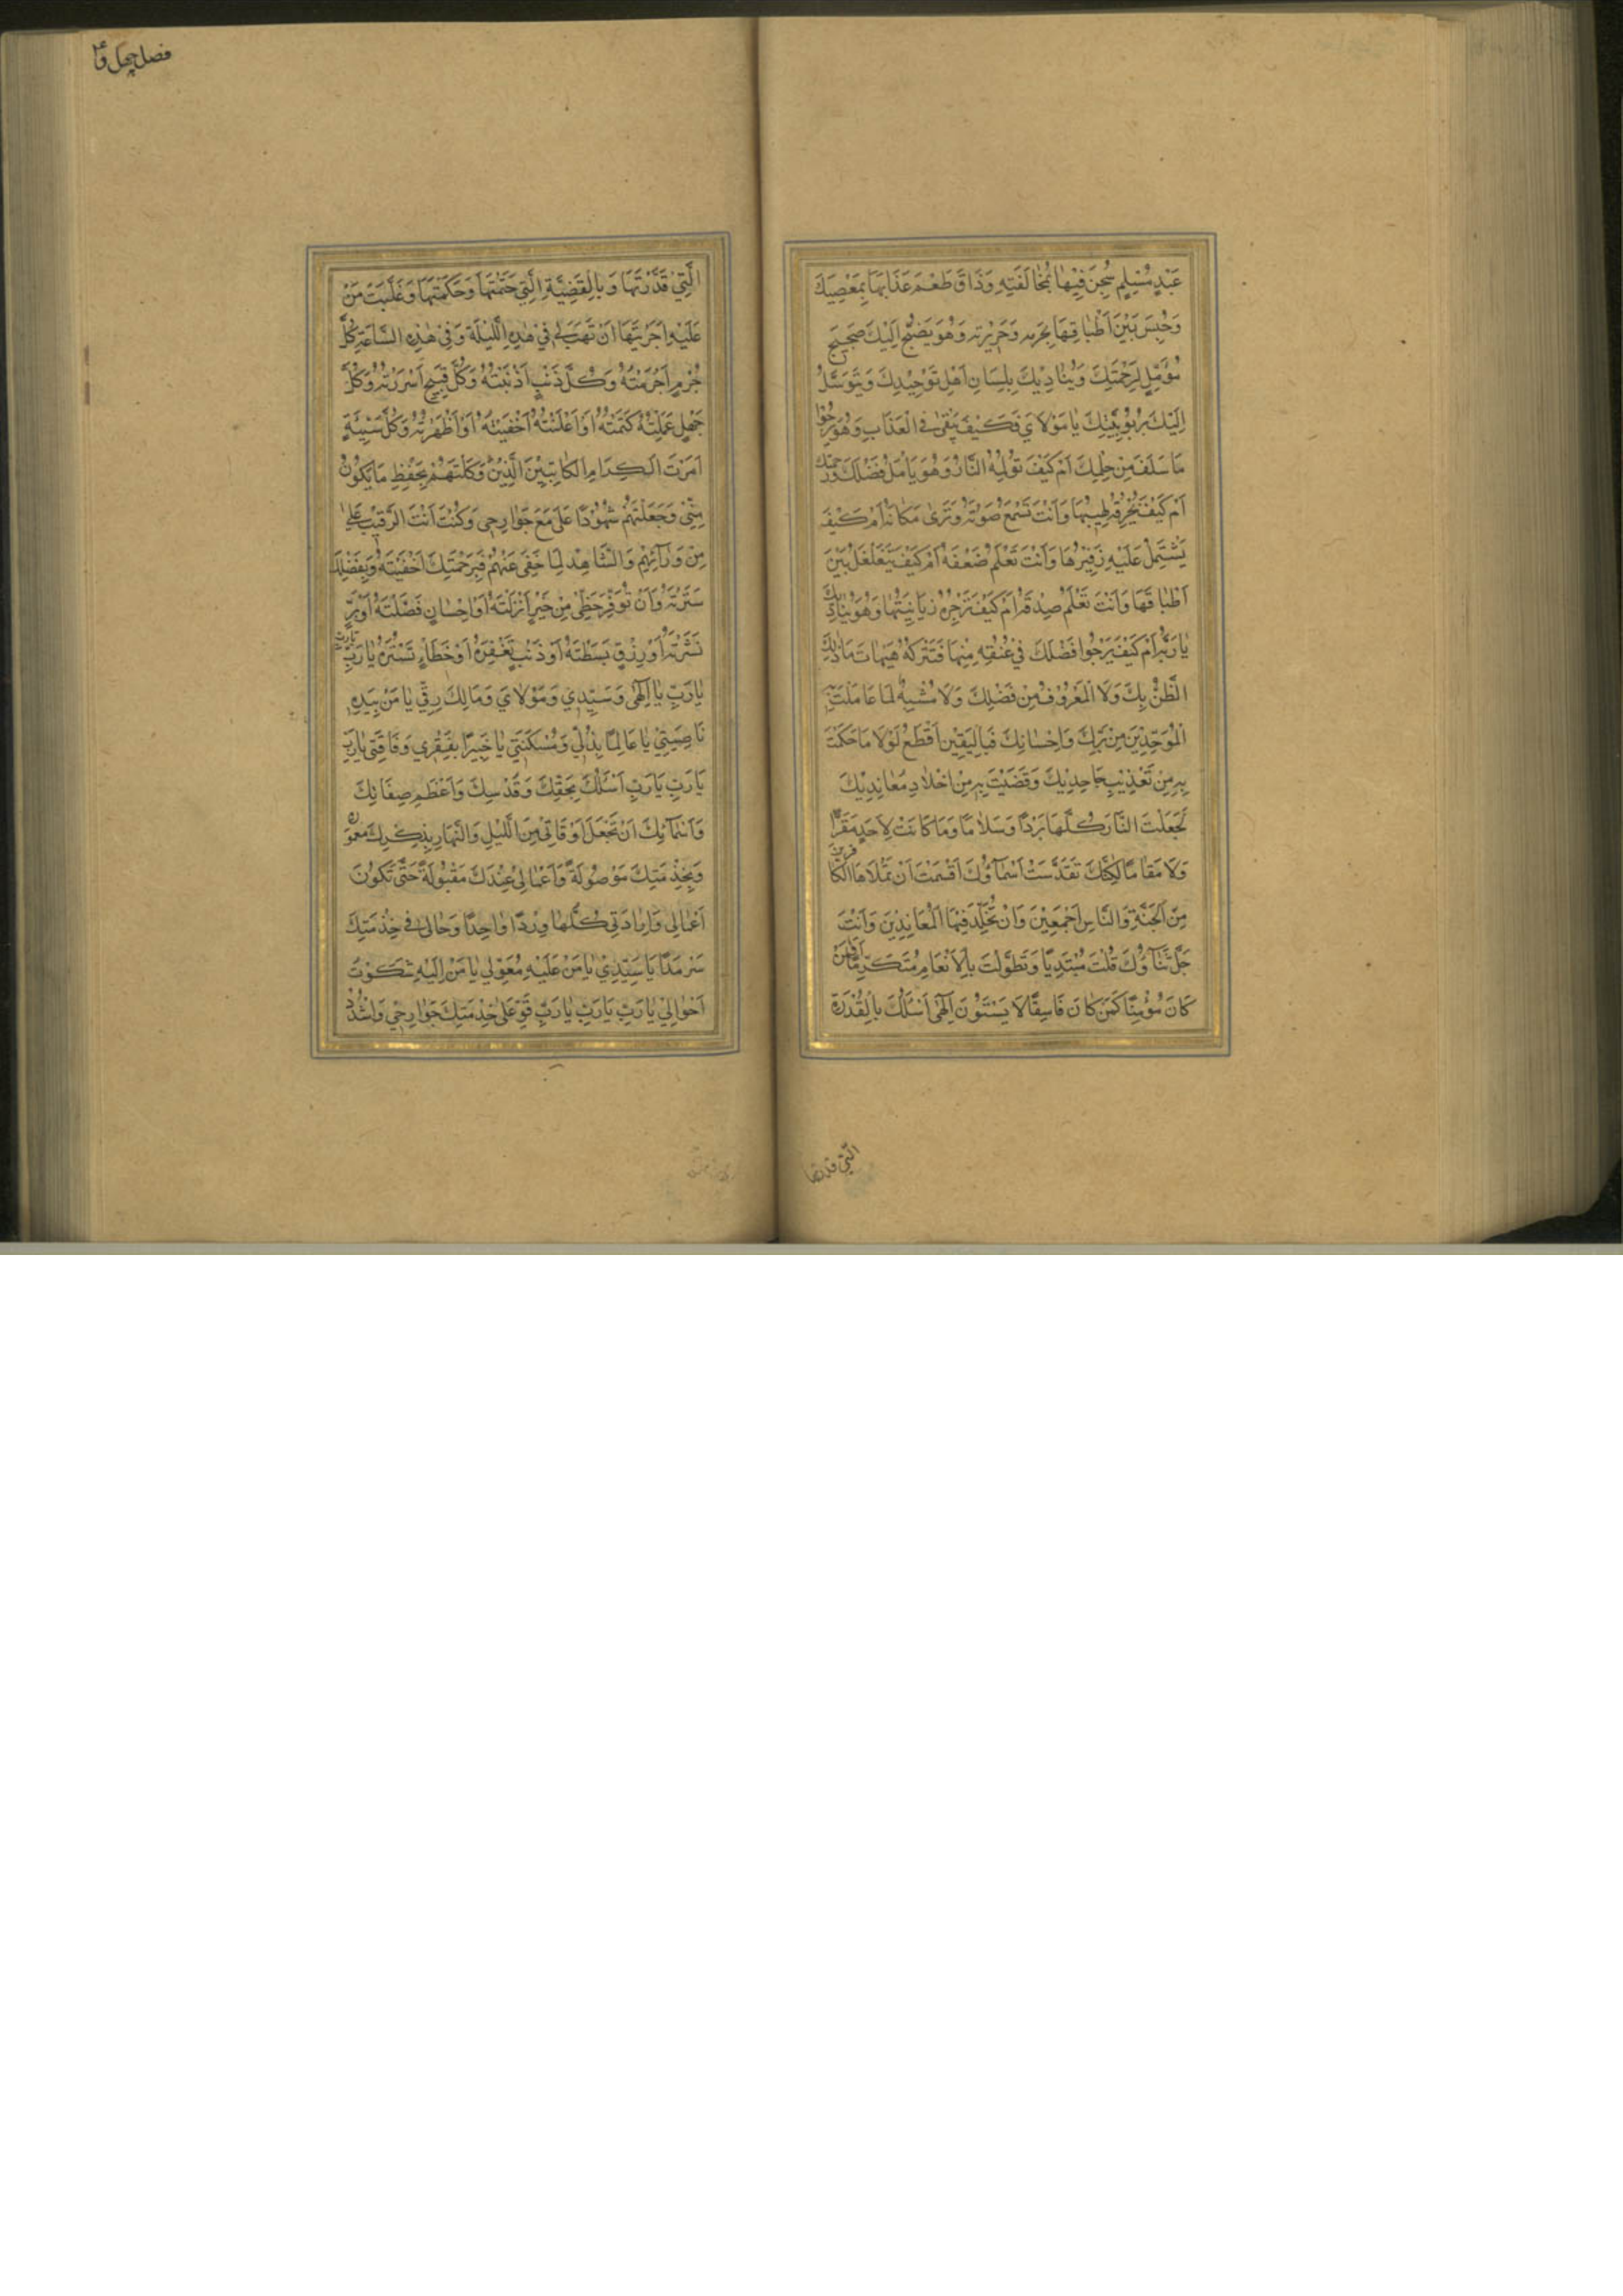 عَبْدٍ مُسْلِمٍ سُجِنَ فِيْهَا بِمُخَالَفَتِهِ وَذَاقَ طَعْمَ عَذَابِهَا بِمَعْصِيَتِكَ
وَحُبِسَ بَيْنَ أَطْبَاقِهَا بِجُرمِهِ وَجَرِيْرَتِهِ وَهُوَ يَضِجُّ اِلَيْكَ ضَجِيجَ
مُؤَمِّلٍ لِرَحْمَتِكَ وَيُنَادِيْكَ بِلِسَانِ اَهْلِ تَوْحِيْدِكَ وَيَتَوَسَّلُ
اِلَيْكَ بِرُبُوْبِيَّتِكَ يَا مَوْلَايَ فَكَيْفَ يَبْقىٰ فِي الْعَذَابِ وَهُوَ يَرْجُوْا
مَا سَلَفَ مِنْ حِلْمِكَ اَمْ كَيْفَ تُوْلِمُهُ النَّارُ وَهُوَ يَأْمَلُ فَضْلَكَ وَرَحْمَتَكَ
اَمْ كَيْفَ يُحْرِقُهُ لَهِيْبُهَا وَاَنْتَ تَسْمَعُ صَوْتَهُ وَتَرىٰ مَكَانَهُ اَمْ كَيْفَ
يَشْتَمِلُ عَلَيْهِ زَفِيْرُهَا وَاَنْتَ تَعْلَمُ ضَعْفَهُ اَمْ كَيْفَ يَتَغَلْغَلُ بَيْنَ
اَطْبَاقِهَا وَاَنْتَ تَعْلَمُ صِدْقَهُ اَمْ كَيْفَ تَزْجُرُهُ زَبَانِيَتُهَا وَهُوَ يُنَادِيْكَ
يَا رَبَّهُ اَمْ كَيْفَ يَرْجُوا فَضْلَكَ فِيْ عِتْقِهِ مِنْهَا فَتَتْرُكُهُ هَيْهَاتَ مَا ذٰلِكَ
الظَّنُّ بِكَ وَلَا الْمَعْرُوْفُ مِنْ فَضْلِكَ وَلَا مُشْبِهٌ لِمَا عَامَلْتَ بِهِ
الْمُوَحِّدِيْنَ مِنْ بِرِّكَ وَاِحْسَانِكَ فَبِالْيَقِيْنِ اَقْطَعُ لَوْلَا مَا حَكَمْتَ
بِهِ مِنْ تَعْذِيْبِ جَاحِدِيْكَ وَقَضَيْتَ بِهِ مِنْ اِخْلَادِ مُعَانِدِيْكَ
لَجَعَلْتَ النَّارَ كُلَّهَا بَرْدًا وَسَلَامًا وَمَا كَانَتْ لِاَحَدٍ مَقَرًّا
وَلَا مَقَامًا لٰكِنَّكَ تَقَدَّسَتْ اَسْمَآؤُكَ اَقْسَمْتَ اَنْ تَمْلَأَهَا الْكَافِرِيْنَ
مِنَ الْجِنَّةِ وَالنَّاسِ اَجْمَعِيْنَ وَاَنْ تُخَلِّدَ فِيْهَا الْمُعَانِدِيْنَ وَاَنْتَ
جَلَّ ثَنَآؤُكَ قُلْتَ مُبْتَدِيًا وَتَطَوَّلْتَ بِالْاِنْعَامِ مُتَكَرِّمًا اَفَمَنْ
كَانَ مُؤْمِنًا كَمَنْ كَانَ فَاسِقًا لَا يَسْتَوُوْنَ اِلٰهِي اَسْئَلُكَ بِالْقُدْرَةِ
التي قدرتها
فصل چهل و
الَّتِيْ قَدَّرْتَهَا وَبِالْقَضِيَّةِ الَّتِيْ حَتَمْتَهَا وَحَكَمْتَهَا وَغَلَبْتَ مَنْ
عَلَيْهِ اَجْرَيْتَهَا اَنْ تَهَبَ لِيْ فِيْ هٰذِهِ اللَّيْلَةِ وَفِيْ هٰذِهِ السَّاعَةِ كُلَّ
جُرْمٍ اَجْرَمْتُهُ وَكُلَّ ذَنْبٍ اَذْنَبْتُهُ وَكُلَّ قَبِيْحٍ اَسْرَرْتُهُ وَكُلَّ
جَهْلٍ عَمِلْتُهُ كَتَمْتُهُ اَوْ اَعْلَنْتُهُ اَخْفَيْتُهُ اَوْ اَظْهَرْتُهُ وَكُلَّ سَيِّئَةٍ
اَمَرْتَ الْكِرَامِ الْكَاتِبِيْنَ الَّذِيْنَ وَكَّلْتَهُمْ بِحِفْظِ مَا يَكُوْنُ
مِنِّيْ وَجَعَلْتَهُمْ شُهُوْدًا عَلَيَّ مَعَ جَوَارِحِي وَكُنْتَ اَنْتَ الرَّقِيْبَ عَلَيَّ
مِنْ وَرَآئِهِمْ وَالشَّاهِدَ لِمَا خَفِيَ عَنْهُمْ فَبِرَحْمَتِكَ اَخْفَيْتَهُ وَبِفَضْلِكَ
سَتَرْتَهُ وَاَنْ تُوَفِّرَ حَظِّيْ مِنْ خَيْرٍ اَنْزَلْتَهُ اَوْ اِحْسَانٍ فَضَّلْتَهُ اَوْ بِرٍّ
نَشَرْتَهُ اَوْ رِزْقٍ بَسَطْتَهُ اَوْ ذَنْبٍ تَغْفِرُهُ اَوْ خَطَاءٍ تَسْتُرُهُ يَا رَبِّ يَا رَبِّ
يَا رَبِّ يَا اِلٰهِي وَسَيِّدِي وَمَوْلَايَ وَمَالِكَ رِقِّيْ يَا مَنْ بِيَدِهِ
نَاصِيَتِيْ يَا عَالِمًا بِذُلِّي وَمَسْكَنَتِي يَا خَبِيْرًا بِفَقْرِي وَفَاقَتِي يَا رَبِّ
يَا رَبِّ يَا رَبِّ اَسْئَلُكَ بِحَقِّكَ وَقُدْسِكَ وَاَعْظَمِ صِفَاتِكَ
وَاَسْمَآئِكَ اَنْ تَجْعَلَ اَوْقَاتِيْ مِنَ اللَّيْلِ وَالنَّهَارِ بِذِكْرِكَ مَعْمُوْرَةً
وَبِخِدْمَتِكَ مَوْصُولَةً وَاَعْمَالِيْ عِنْدَكَ مَقْبُولَةً حَتّٰى تَكُوْنَ
اَعْمَالِي وَاِرَادَتِي كُلُّهَا وِرْدًا وَاحِدًا وَحَالِيْ فِي خِدْمَتِكَ
سَرْمَدًا يَا سَيِّدِيْ يَا مَنْ عَلَيْهِ مُعَوَّلِي يَا مَنْ اِلَيْهِ شَكَوْتُ
اَحْوَالِيْ يَا رَبِّ يَا رَبِّ يَا رَبِّ قَوِّ عَلٰى خِدْمَتِكَ جَوَارِحِيْ وَاشْدُدْ